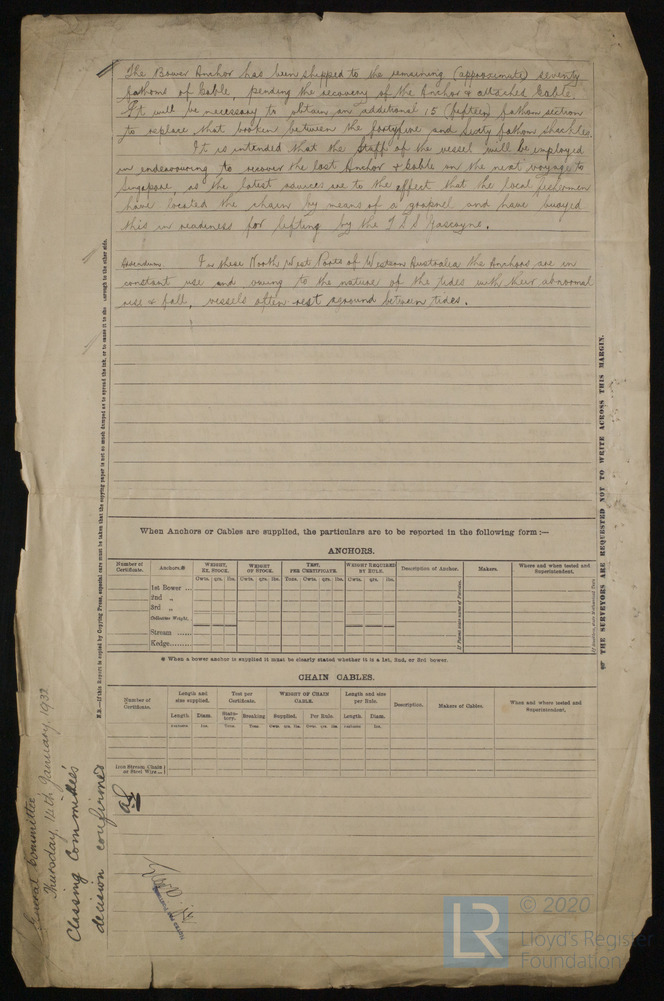 The Bower Anchor has been shipped to the remaining (approximate) seventy
fathoms of Cable pending the recovery of the Anchor & attached Cable.
It will be necessary to obtain an additional 15 (fifteen) fathom section
to replace that broken between the fortyfive and sixty fathom shackles.
It is intended that the staff of the vessel will be employed
in endeavouring to recover the lost Anchor & Cable on the next voyage to
Singapore, as the latest advices are to the effect that the local fishermen
have located the chain by means of a grapnel and have buoyed
this in readiness for lifting by the T.S.S Gascoyne.
In these North West Ports of Western Australia the Anchors are in
constant use and owing to the nature of the tides with their abnormal
rise & fall, vessels often rest aground between tides.
When Anchors or Cables are supplied, the particulars are to be reported in the following form :—
ANCHORS.
Number of Certificate. Anchors.* WEIGHT, EX. STOCK. WEIGHT OF STOCK. TEST, PER CERTIFICATE. WEIGHT REQUIRED BY RULE. Description of Anchor. Makers. Where and when tested and Superintendent.
Cwts. qrs. lbs. Cwts. qrs. lbs. Tons. Cwts. qrs. lbs. Cwts. qrs. lbs.
1st Bower ...
2nd „
3rd „
Collective Weight
Stream ......
Kedge........
* When a bower anchor is supplied it must be clearly stated whether it is a 1st, 2nd, or 3rd bower.
CHAIN CABLES.
Number of Certificate. Length and size supplied. Test per Certificate. WEIGHT OF CHAIN CABLE. Length and size per Rule. Description. Makers of Cables. When and where tested and Superintendent.
Length. Diam. Statutory. Breaking Supplied. Per Rule. Length. Diam.
Iron Stream Chain or Steel Wire
N.B.—If this Report is copied by Copying Press, especial care must be taken that the copying paper is not so much damped as to spread the ink, or to cause it to show through to the other side.
THE SURVEYORS ARE REQUESTED NOT TO WRITE ACROSS THIS MARGIN.
General Committee
Thursday, 14th January, 1932
Classing Committee's
decision confirmed
© 2020
LR
Lloyd's Register
Foundation